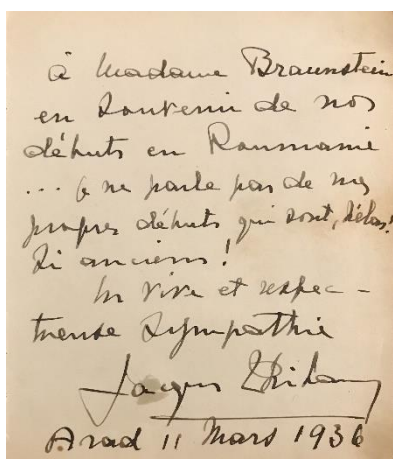 à Madame Braunstein
en souvenir de nos
débuts en Roumanie
... je ne parle pas de mes
propres débuts qui sont, hélas!
si anciens!
en vive et respec-
tueuse sympathie
Jacques Thibaud
Arad 11 Mars 1936